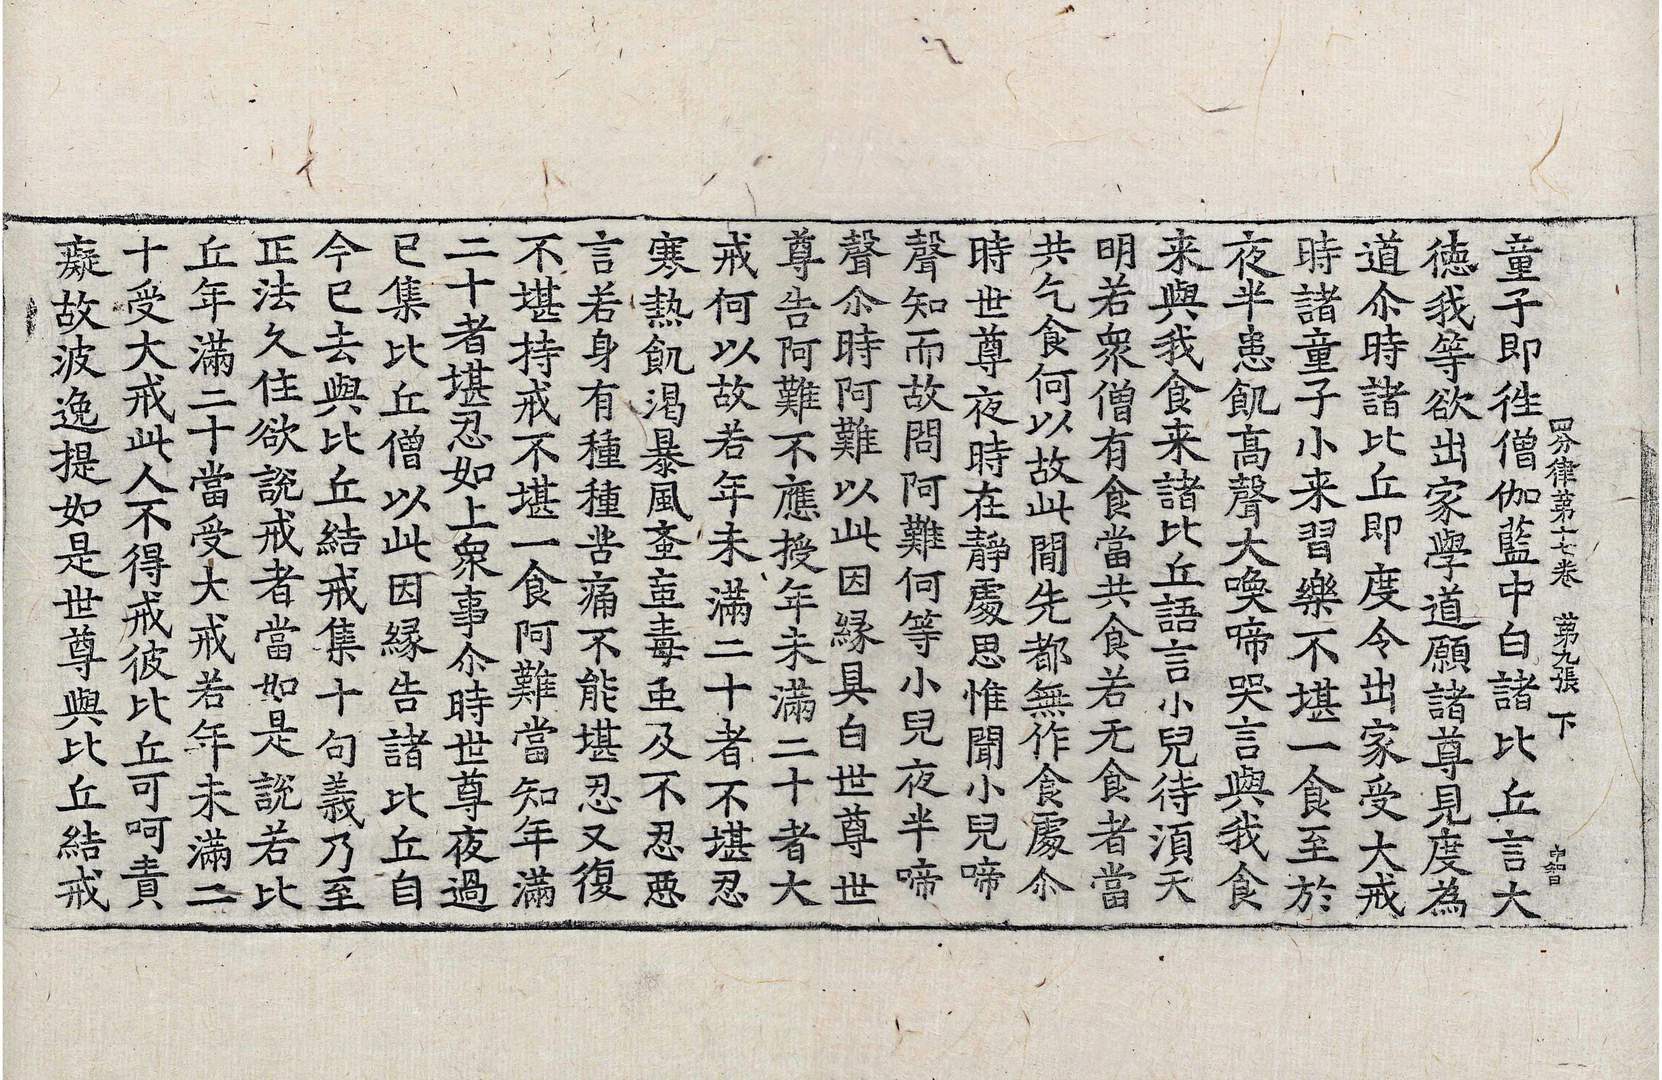 四分律第十七卷 第九張 下
童子即往僧伽藍中白諸比丘言大
徳我等欲出家學道願諸尊見度為
道尒時諸比丘即度令出家受大戒
時諸童子小来習樂不堪一食至於
夜半患飢髙聲大喚啼哭言與我食
来與我食来諸比丘語言小兒待湏天
明若衆僧有食當共食若无食者當
共乞食何以故此間先都無作食處尒
時世尊夜時在靜處思惟聞小兒啼
聲知而故問阿難何等小兒夜半啼
聲尒時阿難以此因縁具白世尊世
尊告阿難不應授年未滿二十者大
戒何以故若年未滿二十者不堪忍
寒熱飢渴暴風蚉䖝毒𧈧及不忍惡
言若身有種種苦痛不能堪忍又復
不堪持戒不堪一食阿難當知年滿
二十者堪忍如上衆事尒時世尊夜過
已集比丘僧以此因縁告諸比丘自
今已去與比丘結戒集十句義乃至
正法久住欲說戒者當如是說若比
丘年滿二十當受大戒若年未滿二
十受大戒此人不得戒彼比丘可呵責
癡故波逸提如是世尊與比丘結戒